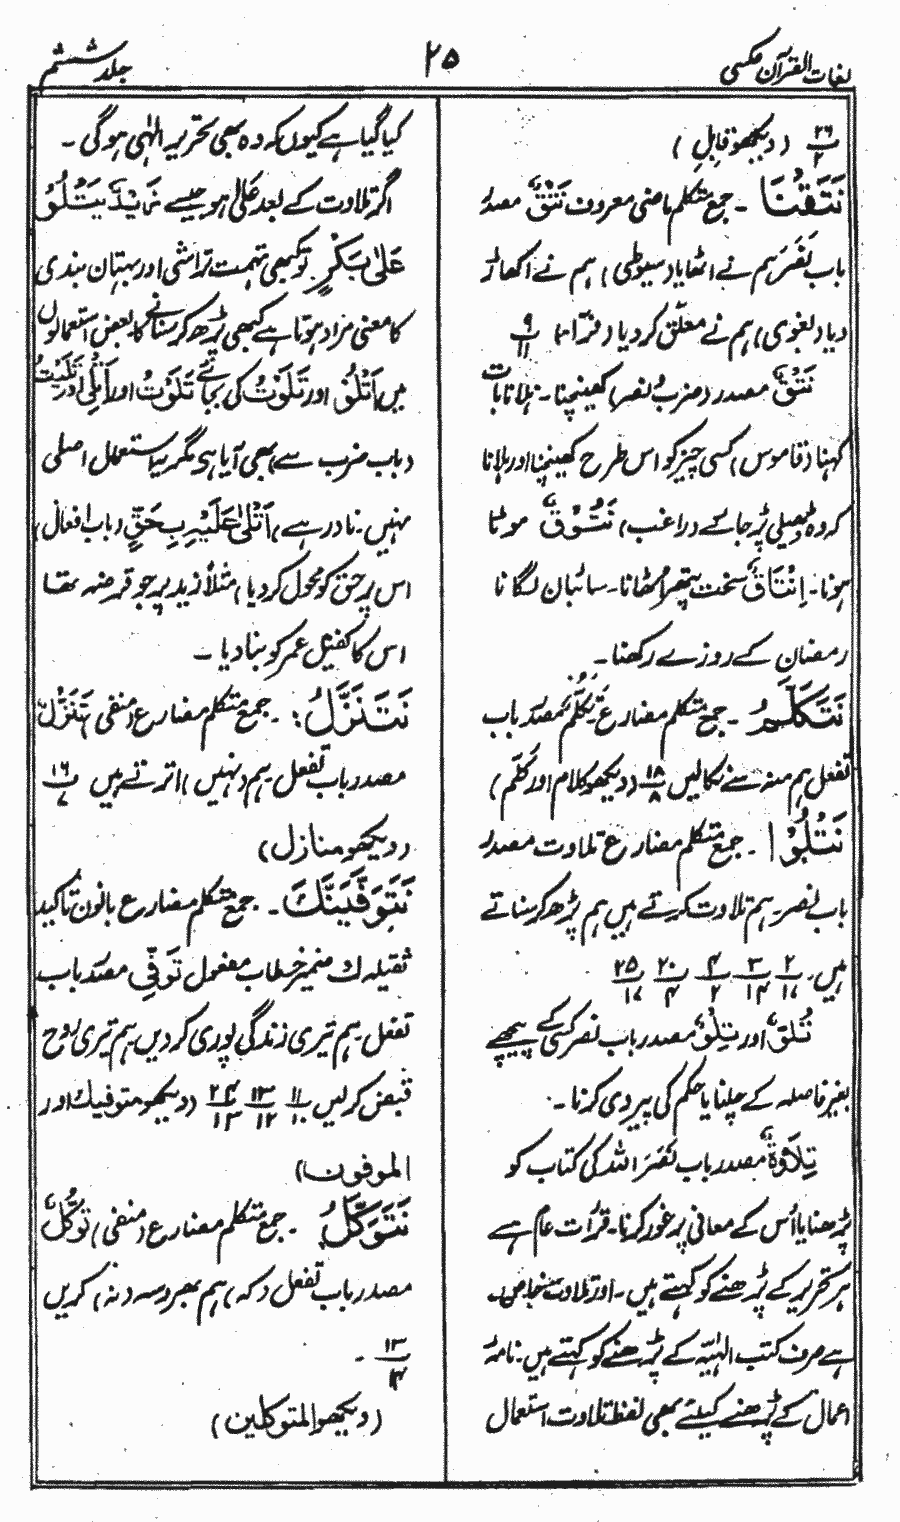 لغات القرآن مکمل ۲۵ جلد ششم
۲۶/۲ (دیکھو قابل)
نَتَقْنَا ۔ جمع متکلم ماضی معروف نَتْقٌ مصدر
باب نَصَرَ ہم نے اٹھایا (سیوطی) ہم نے اکھاڑ
دیا (بغوی) ہم نے معلّق کر دیا (فرّاء) ۹/۱۱
نَتْقٌ مصدر (ضرب و نصر) کھینچنا ۔ ہلانا بات
کہنا (قاموس) کسی چیز کو اس طرح کھینچنا اور ہلانا
کہ وہ ڈھیلی پڑ جائے (راغب) نُتُوْقٌ موٹا
ہونا ۔ اِنْتَاقٌ سخت پتھر اٹھانا ۔ سائبان لگانا
رمضان کے روزے رکھنا ۔
نَتَكَلَّمُ ۔ جمع متکلم مضارع تَکَلُّمٌ مصدر باب
تفعل ہم منہ سے نکالیں ۱۸/۸ (دیکھو کلام اور کلّم)
نَتْلُوْا ۔ جمع متکلم مضارع تلاوت مصدر
باب نصر ۔ ہم تلاوت کرتے ہیں ہم پڑھ کر سناتے
ہیں ۲/۱۷ ۳/۱۴ ۴/۲ ۲۰/۴ ۲۵/۱۷
تُلُوٌّ اور تِلْوٌ مصدر باب نصر کسی کے پیچھے
بغیر فاصلہ کے چلنا یا حکم کی پیروی کرنا ۔
تِلَاوَةٌ مصدر باب نَصَرَ اللہ کی کتاب کو
پڑھنا یا اُس کے معانی پر غور کرنا ۔ قرأت عام ہے
ہر تحریر کے پڑھنے کو کہتے ہیں ۔ اور تلاوت خاص
ہے صرف کتب الٰہیّہ کے پڑھنے کو کہتے ہیں ۔ نامۂ
اعمال کے پڑھنے کیلئے بھی لفظ تلاوت استعمال
کیا گیا ہے کیوں کہ وہ بھی تحریر الٰہی ہوگی ۔
اگر تلاوت کے بعد عَلٰی ہو جیسے زَیْدٌ یَتْلُوْ
عَلٰی بَکْرٍ تو کبھی تہمت تراشی اور بہتان بندی
کا معنی مراد ہوتا ہے کبھی پڑھ کر سنانے کا بعض استعمالوں
میں اَتْلُوْ اور تَلَوْتُ کی بجائے تَلَوْتُ اور اَتْلِیْ اور تَلَیْتُ
(باب ضرب سے) بھی آیا ہے مگر یہ استعمال اصلی
نہیں ۔ نادر ہے، اَتْلٰی عَلَیْہِ بِحَقٍّ (باب افعال)
اس پر حق کو محول کر دیا، مثلاً زید پر جو قرضہ تھا
اس کا کفیل عمر کو بنا دیا ۔
نَتَنَزَّلُ ۔ جمع متکلم مضارع (منفی) تَنَزُّلٌ
مصدر باب تفعل ۔ ہم (نہیں) اترتے ہیں ۱۶/۷
(دیکھو منازل)
نَتَوَفَّيَنَّكَ ۔ جمع متکلم مضارع بانون تاکید
ثقیلہ ك ضمیر خطاب مفعول تَوَفِّی مصدر باب
تفعل ۔ ہم تیری زندگی پوری کر دیں ۔ ہم تیری روح
قبض کر لیں ۱۱/۱۰ ۱۳/۱۲ ۲۴/۱۳ (دیکھو متوفیك اور
الموفون)
نَتَوَكَّلُ ۔ جمع متکلم مضارع (منفی) تَوَکُّلٌ
مصدر باب تفعل (کہ) ہم بھروسہ (نہ) کریں
۱۳/۱۴ ۔
(دیکھو المتوکلین)